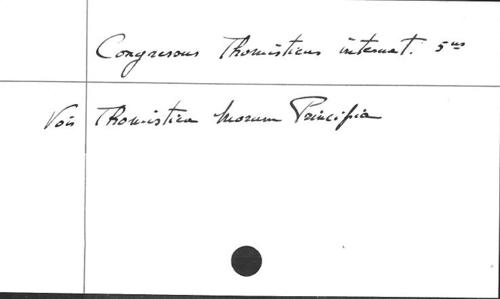 Congressus Thomisticus internat. 5us
Voir Thomistica Morum Principia